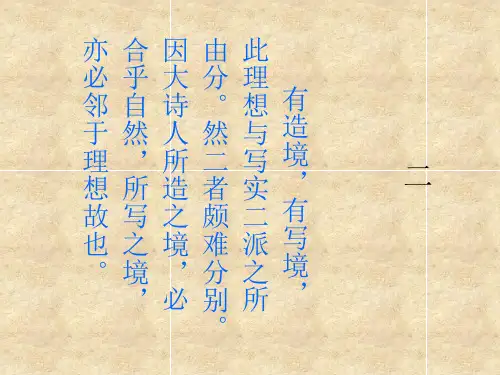 二
有造境，有写境，
此理想与写实二派之所
由分。然二者颇难分别。
因大诗人所造之境，必
合乎自然，所写之境，
亦必邻于理想故也。